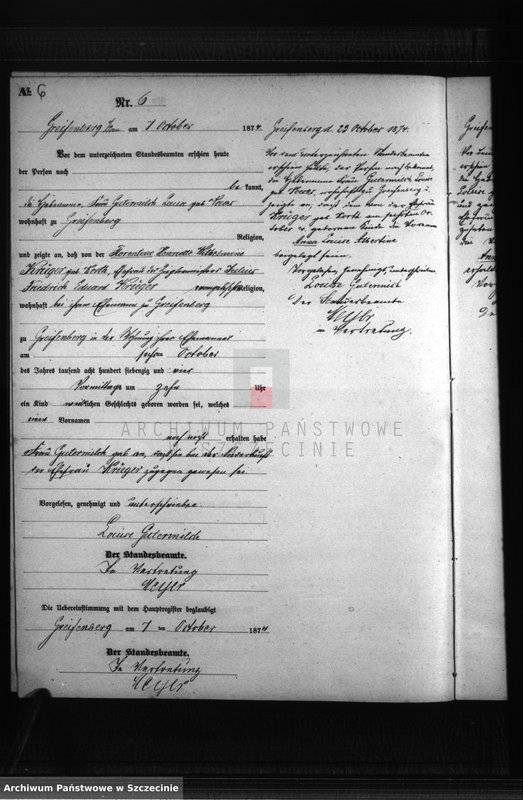 № 6
Nr. 6
Greifenberg i/Pom am 7 October 1874.
Vor dem unterzeichneten Standesbeamten erschien heute
der Person nach
be kannt,
die Hebamme, Frau Gutermilch Louise geb
wohnhaft zu Greifenberg
Religion,
und zeigte an, daß von der Florentine Henriette Wilhelmine
Krüger geb. Korth, Ehefrau des Julius
Friedrich Eduard Krüger evangelischer Religion,
wohnhaft bei ihrem Ehemanne zu Greifenberg
zu Greifenberg in der Wohnung ihres Ehemannes
am sechsten October
des Jahres tausend acht hundert siebenzig und vier
Vormittags um zehn Uhr
ein Kind weiblichen Geschlechts geboren worden sei, welches
einen Vornamen
noch nicht erhalten habe
Frau Gutermilch gab an, daß sie bei der Niederkunft
der Ehefrau Krüger zugegen gewesen sei
Vorgelesen, genehmigt und unterschrieben
Louise Gutermilch
Der Standesbeamte.
In Vertretung
Die Uebereinstimmung mit dem Hauptregister beglaubigt
Greifenberg am 7 ten October 1874
Der Standesbeamte.
In Vertretung
Greifenberg d. 23 October 1874.
Vor dem unterzeichneten Standesbeamten
erschien heute, der Person nach bekannt,
die Hebamme Frau Gutermilch Louise
geb. wohnhaft zu Greifenberg u.
zeigte an, daß dem von der Ehefrau
Krüger geb. Korth am sechsten Oc-
tober c. geborenen Kinde die Vornamen
Anna Louise Albertine
beigelegt seien.
Vorgelesen, genehmigt, unterschrieben
Louise Gutermilch
Der Standesbeamte
in Vertretung.
ARCHIWUM PAŃSTWOWE
W SZCZECINIE
Archiwum Państwowe w Szczecinie